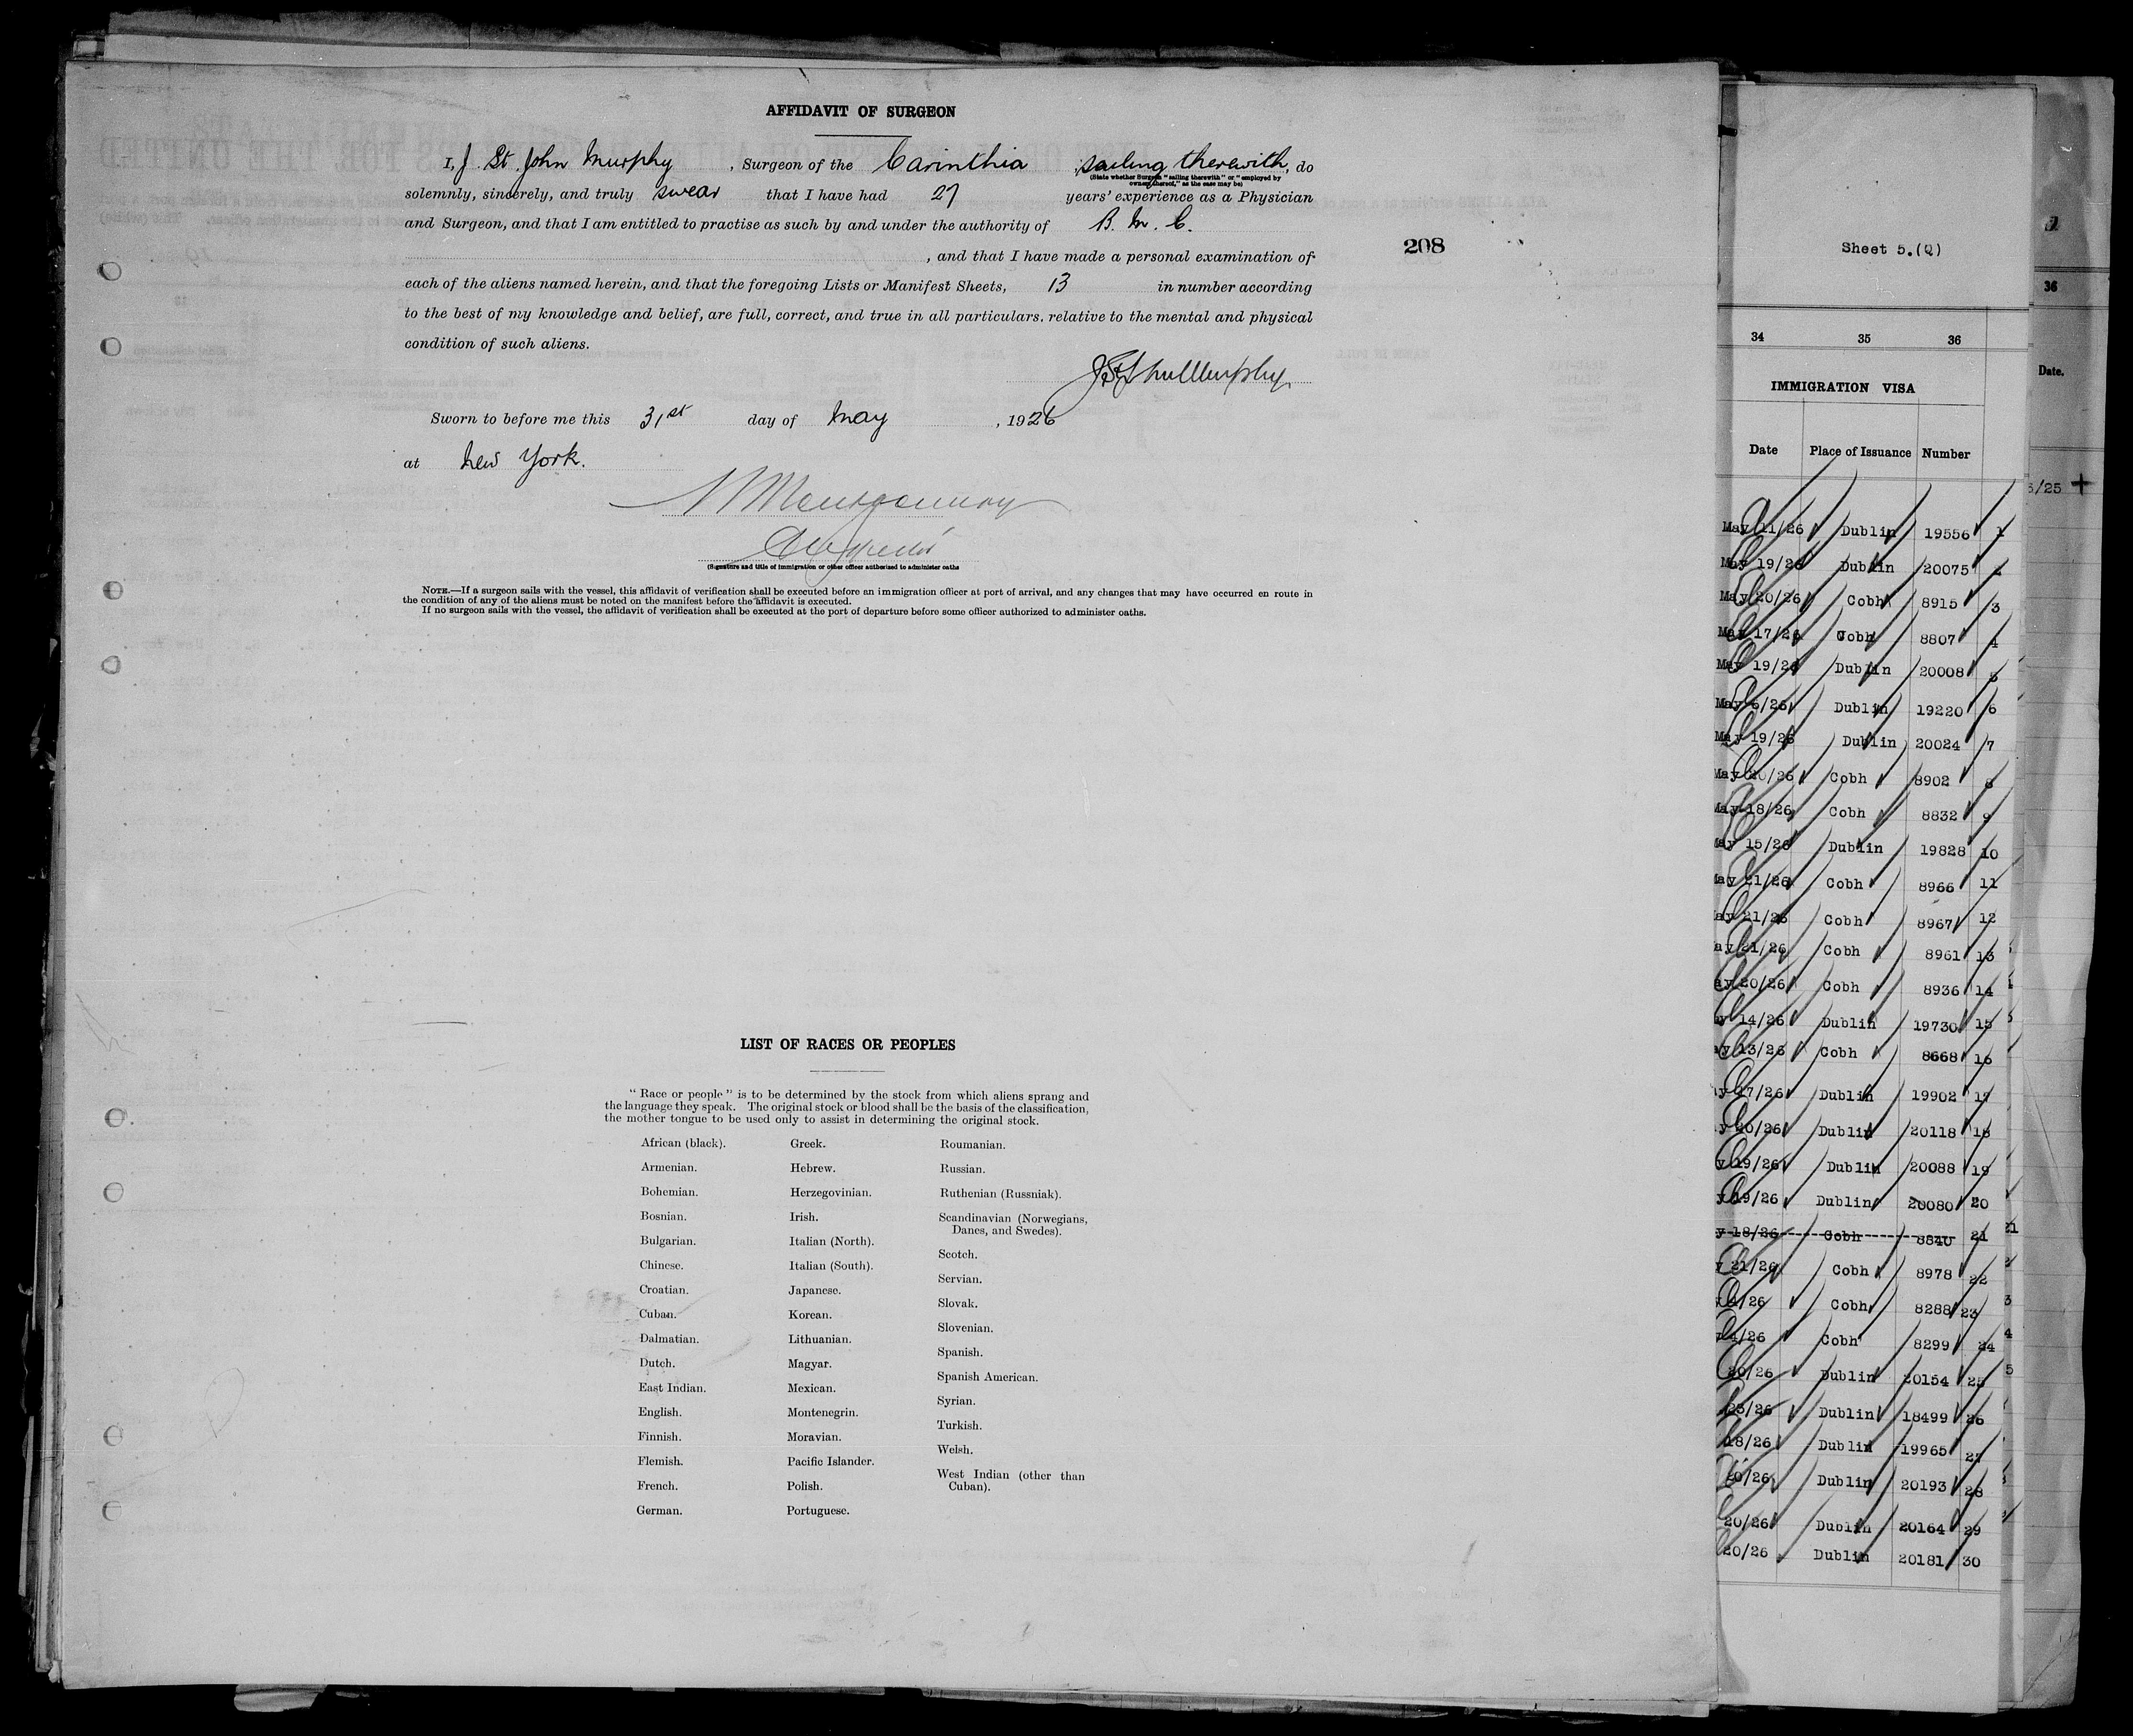 AFFIDAVIT OF SURGEON
I, J. St. John Murphy , Surgeon of the Carinthia , sailing therewith, do
(State whether Surgeon "sailing therewith" or "employed by
owners thereof," as the case may be)
solemnly, sincerely, and truly swear that I have had 27 years' experience as a Physician
and Surgeon, and that I am entitled to practise as such by and under the authority of B. M. C.
, and that I have made a personal examination of
208
each of the aliens named herein, and that the foregoing Lists or Manifest Sheets, 13 in number according
to the best of my knowledge and belief, are full, correct, and true in all particulars, relative to the mental and physical
condition of such aliens.
J St John Murphy
Sworn to before me this 31st day of May , 1926
at New York.
Montgomery
(Signature and title of immigration or other officer authorized to administer oaths
NOTE.—If a surgeon sails with the vessel, this affidavit of verification shall be executed before an immigration officer at port of arrival, and any changes that may have occurred en route in
the condition of any of the aliens must be noted on the manifest before the affidavit is executed.
If no surgeon sails with the vessel, the affidavit of verification shall be executed at the port of departure before some officer authorized to administer oaths.
LIST OF RACES OR PEOPLES
"Race or people" is to be determined by the stock from which aliens sprang and
the language they speak. The original stock or blood shall be the basis of the classification,
the mother tongue to be used only to assist in determining the original stock.
African (black).
Armenian.
Bohemian.
Bosnian.
Bulgarian.
Chinese.
Croatian.
Cuban.
Dalmatian.
Dutch.
East Indian.
English.
Finnish.
Flemish.
French.
German.
Greek.
Hebrew.
Herzegovinian.
Irish.
Italian (North).
Italian (South).
Japanese.
Korean.
Lithuanian.
Magyar.
Mexican.
Montenegrin.
Moravian.
Pacific Islander.
Polish.
Portuguese.
Roumanian.
Russian.
Ruthenian (Russniak).
Scandinavian (Norwegians,
Danes, and Swedes).
Scotch.
Servian.
Slovak.
Slovenian.
Spanish.
Spanish American.
Syrian.
Turkish.
Welsh.
West Indian (other than
Cuban).
Sheet 5.(Q)
34 35 36
IMMIGRATION VISA
Date Place of Issuance Number
May 11/26 Dublin 19556 1
May 19/26 Dublin 20075 2
May 20/26 Cobh 8915 3
May 17/26 Cobh 8807 4
May 19/26 Dublin 20008 5
May 6/26 Dublin 19220 6
May 19/26 Dublin 20024 7
May 20/26 Cobh 8902 8
May 18/26 Cobh 8832 9
May 15/26 Dublin 19828 10
May 21/26 Cobh 8966 11
ay 21/26 Cobh 8967 12
ay 21/26 Cobh 8961 13
ay 20/26 Cobh 8936 14
y 14/26 Dublin 19730 15
ay 13/26 Cobh 8668 16
y 17/26 Dublin 19902 17
y 20/26 Dublin 20118 18
y 19/26 Dublin 20088 19
y 19/26 Dublin 20080 20
y 18/26 Cobh 8840 21
y 21/26 Cobh 8978 22
4/26 Cobh 8288 23
4/26 Cobh 8299 24
20/26 Dublin 20154 25
23/26 Dublin 18499 26
18/26 Dublin 19965 27
20/26 Dublin 20193 28
20/26 Dublin 20164 29
20/26 Dublin 20181 30
36
Date.
5/25 +
21
3
4
5